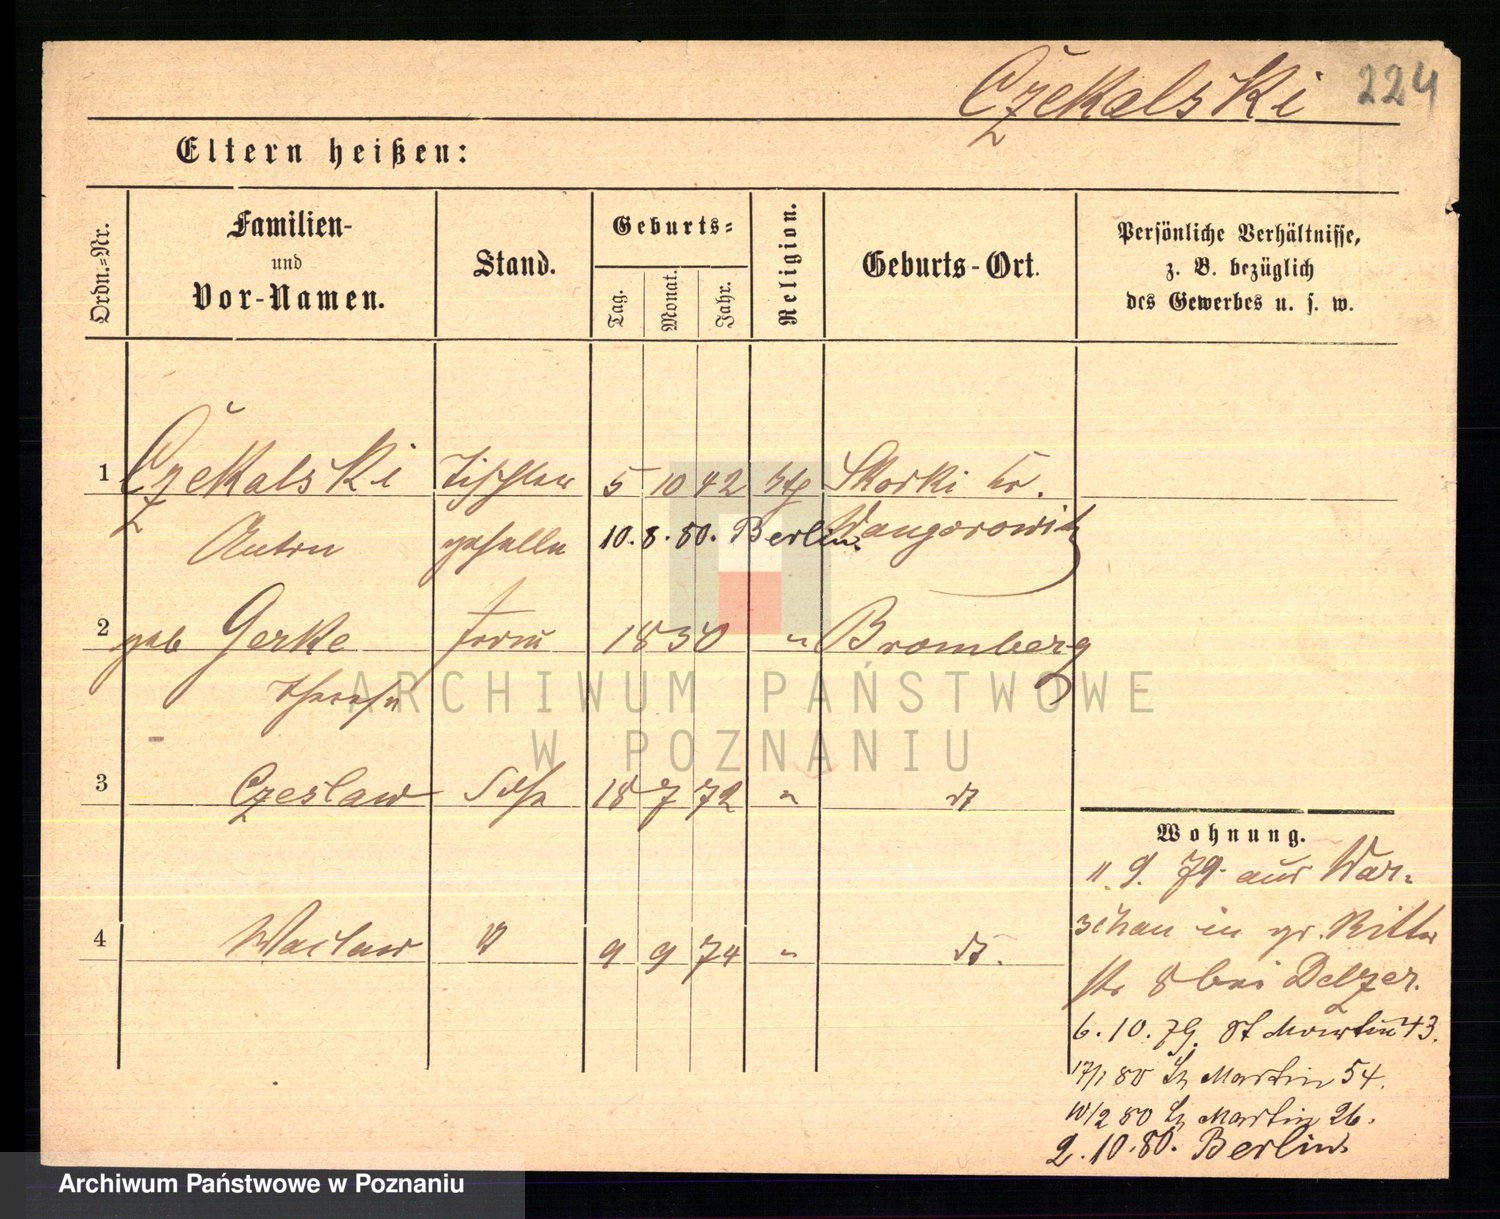 Czekalski 224
Eltern heißen:
Ordn.=Nr.
Familien-
und
Vor-Namen.
Stand.
Geburts=
Tag.
Monat.
Jahr.
Religion.
Geburts-Ort.
Persönliche Verhältnisse,
z. B. bezüglich
des Gewerbes u. s. w.
1 Czekalski Tischler 5 10 42 Skorki Kr.
Anton geselle 10. 8. 80. Berlin. Wangorowitz
2 geb Gerke Frau 1850 " Bromberg
Therese
3 Czeslaw Sohn 18 7 72 " dt
4 Waclaw 9 9 74 " dt.
Wohnung.
11. 9. 79. aus War=
schau in gr. Ritter
str 8 bei Delzer.
6. 10. 79. St Martin 43.
17/1 80 St Martin 54.
10/2 80 St Martin 26.
2. 10. 80. Berlin
ARCHIWUM PAŃSTWOWE
W POZNANIU
Archiwum Państwowe w Poznaniu